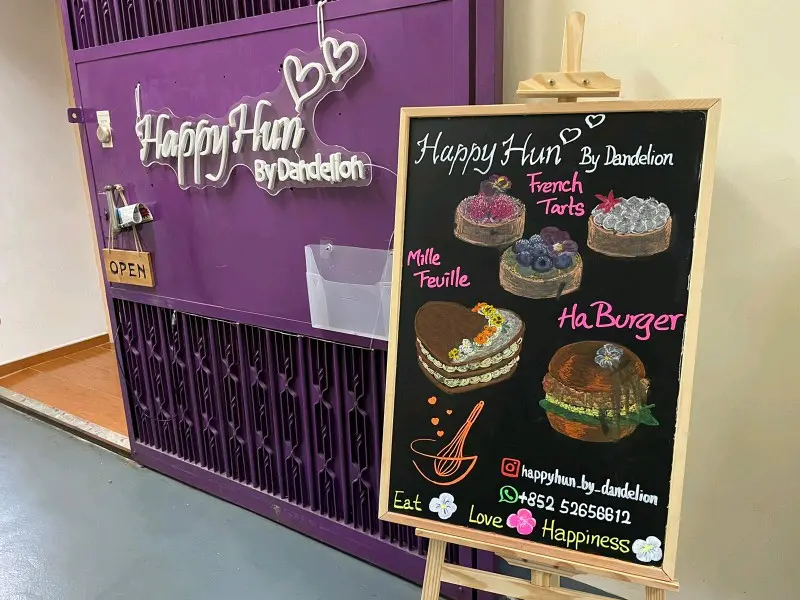 Happy Hun
By Dandelion
OPEN
Happy Hun By Dandelion
French
Tarts
Mille
Feuille
HaBurger
happyhun_by_dandelion
+852 52656612
Eat Love Happiness